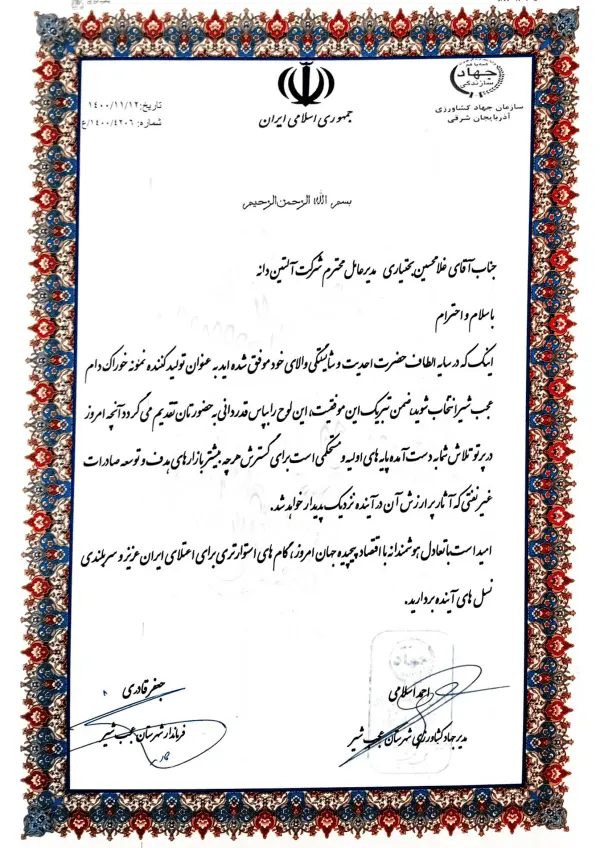 همه با هم
جهاد
سازندگی
سازمان جهاد کشاورزی
آذربایجان شرقی
جمهوری اسلامی ایران
تاریخ: ۱۴۰۰/۱۱/۱۲
شماره: ۱۴۰۰/۴۲۰۶/ع
بسم الله الرحمن الرحیم
جناب آقای غلامحسین بختیاری مدیرعامل محترم شرکت آلتین دانه
با سلام و احترام
اینک که در سایه الطاف حضرت احدیت و شایستگی والای خود موفق شده اید به عنوان تولید کننده نمونه خوراک دام
عجب شیر انتخاب شوید، ضمن تبریک این موفقیت، این لوح را بپاس قدردانی به حضورتان تقدیم می گردد آنچه امروز
در پرتو تلاش شما به دست آمده پایه های اولیه و مستحکمی است برای گسترش هرچه بیشتر بازارهای هدف و توسعه صادرات
غیر نفتی که آثار پر ارزش آن در آینده نزدیک پدیدار خواهد شد.
امید است با تعادل هوشمندانه با اقتصاد پیچیده جهان امروز، گام های استوارتری برای اعتلای ایران عزیز و سربلندی
نسل های آینده بردارید.
احمد اسلامی
مدیر جهاد کشاورزی شهرستان عجب شیر
جعفر قادری
فرماندار شهرستان عجب شیر